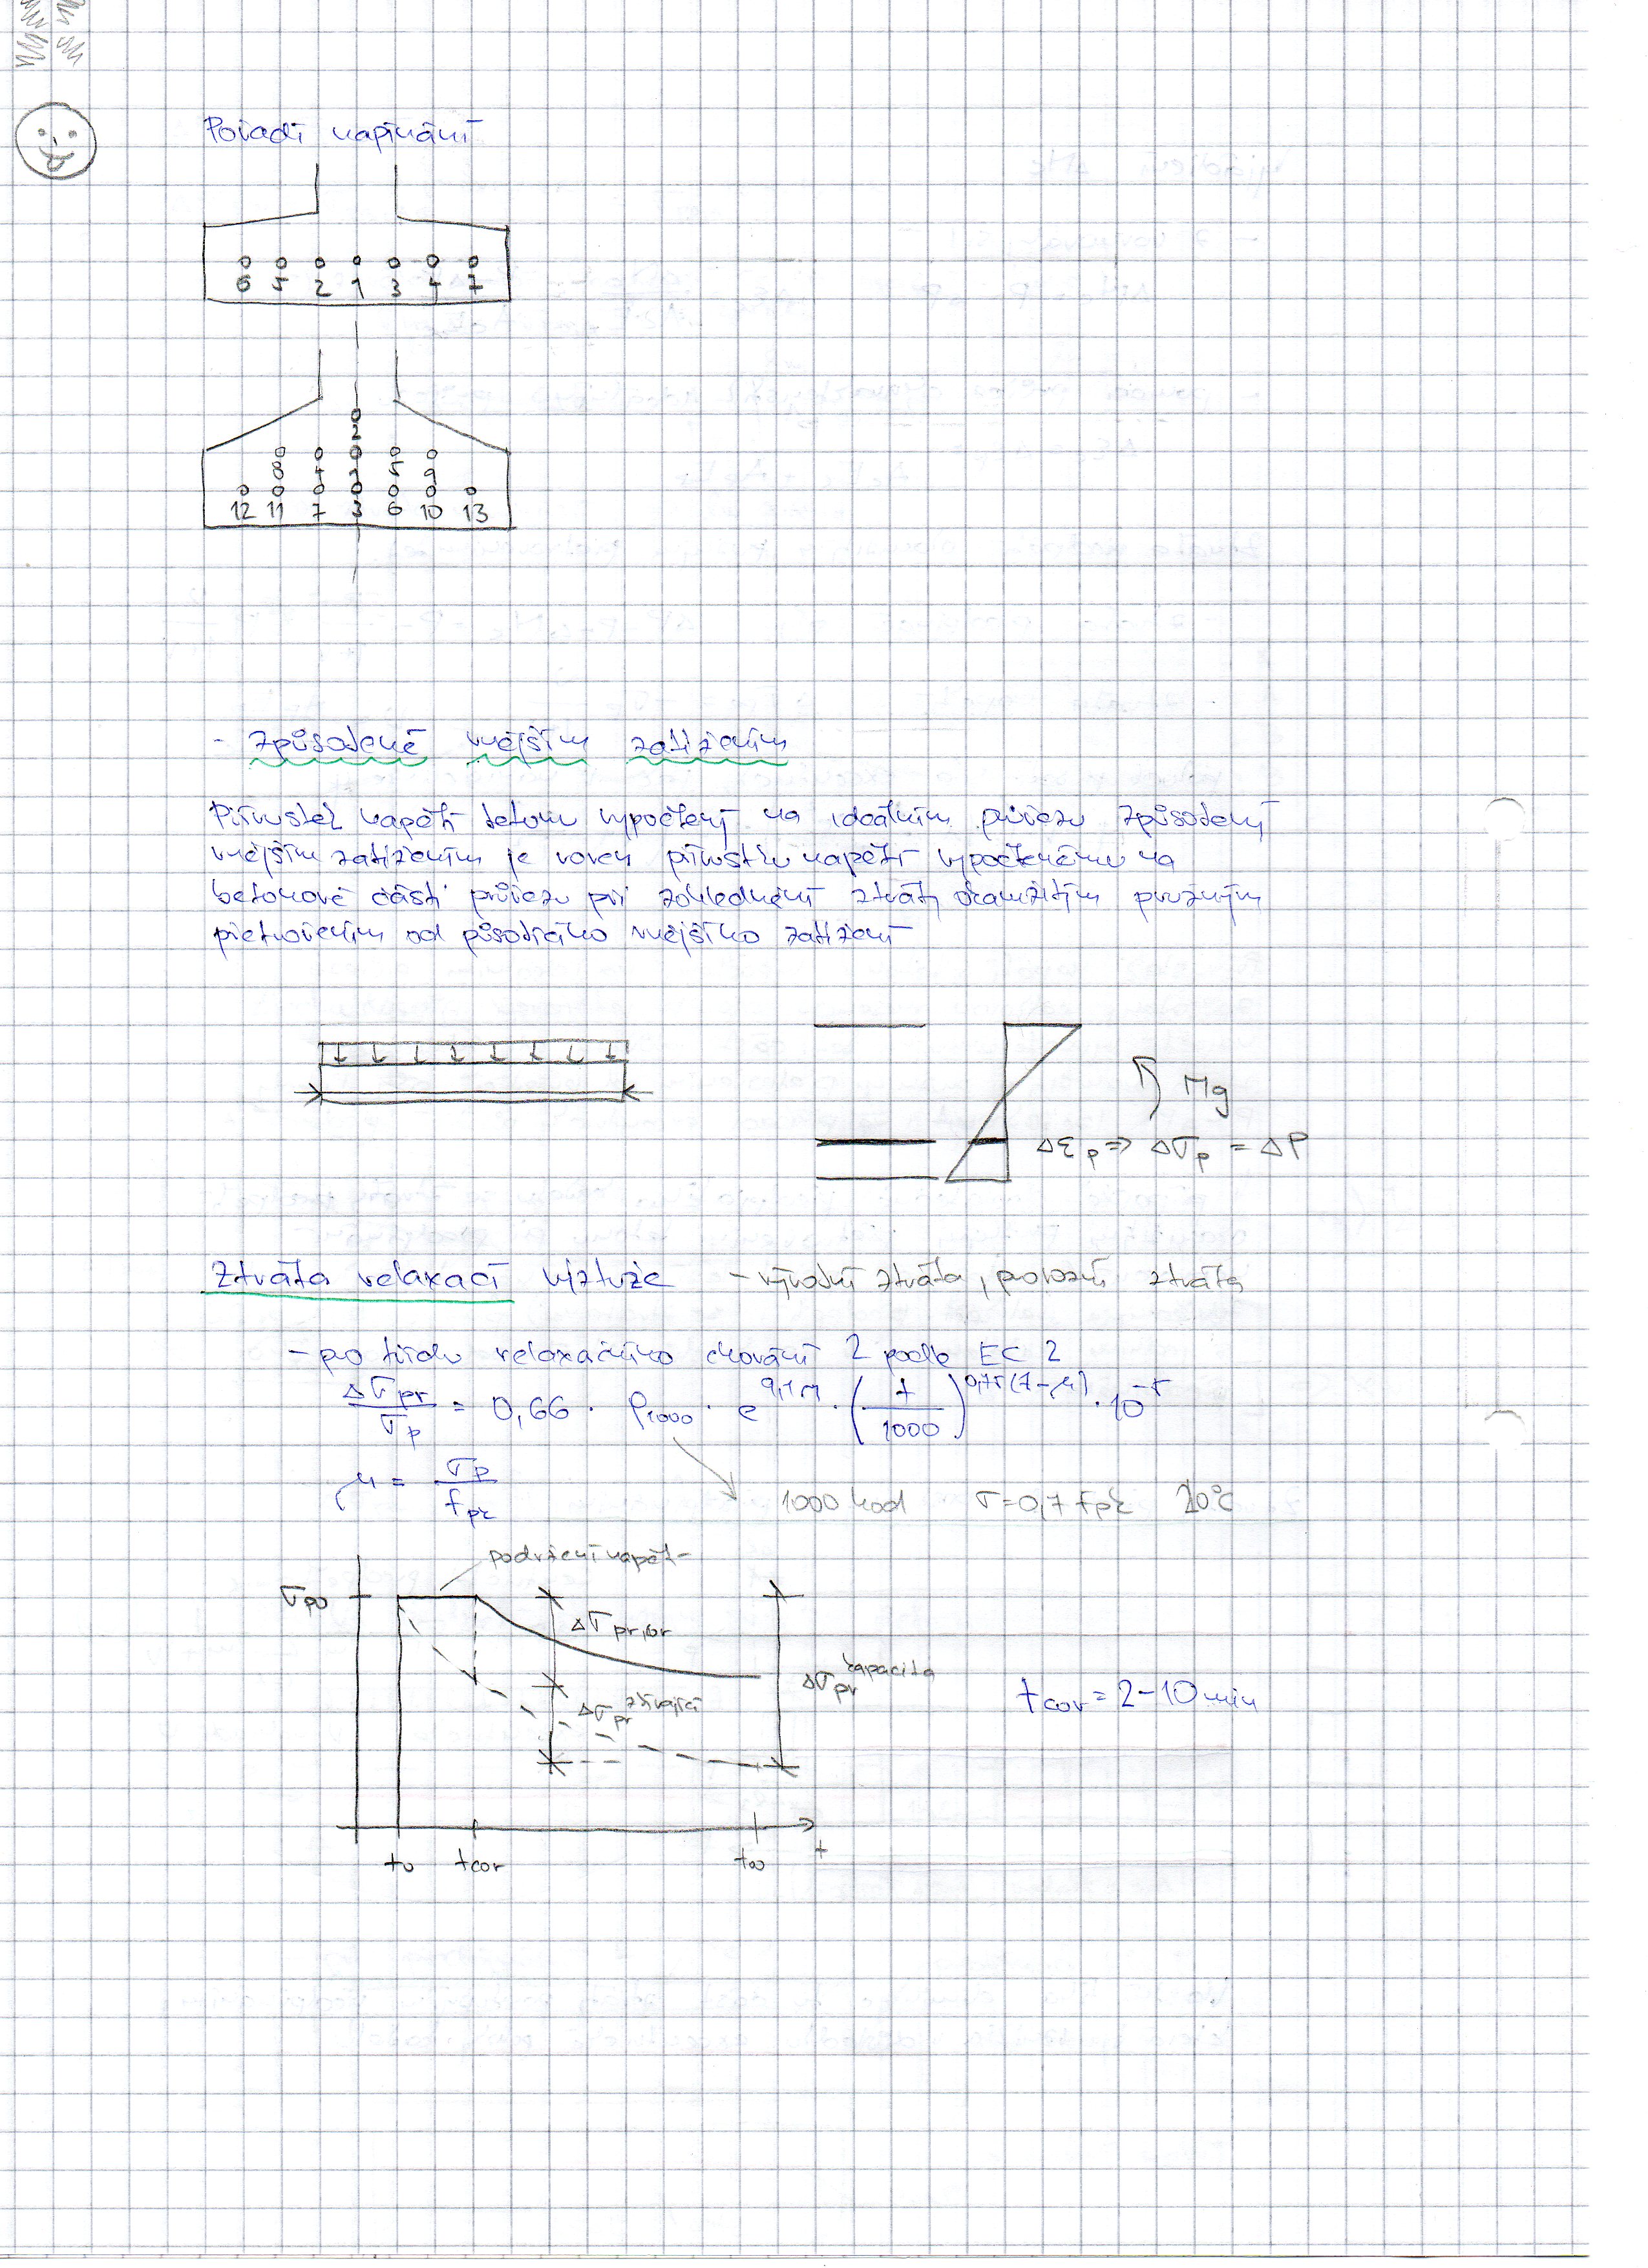 Pořadí napínání
6 5 2 1 3 4 7
2
8 4 1 5 9
12 11 7 3 6 10 13
- Způsobené vnějším zatížením
Přírůstek napětí betonu vypočtený na ideálním průřezu způsobený
vnějším zatížením je roven přírůstku napětí vypočtenému na
betonové části průřezu při zohlednění ztráty okamžitým pružným
přetvořením od působícího vnějšího zatížení
Mg
Δε_p ⇒ Δσ_p = ΔP
Ztráta relaxací výztuže - výrobní ztráta, provozní ztráta
- pro třídu relaxačního chování 2 podle EC 2
Δσ_pr / σ_p = 0,66 · ρ_1000 · e^(9,1μ) · (t / 1000)^(0,75(1-μ)) · 10^-5
μ = σ_p / f_pk
1000 hod σ=0,7 fpk 20°C
podržení napětí
σ_p0
Δσ_pr,cor
Δσ_pr^kapacita
Δσ_pr^zbývající
t_cor = 2-10 min
t_0 t_cor t_∞ t